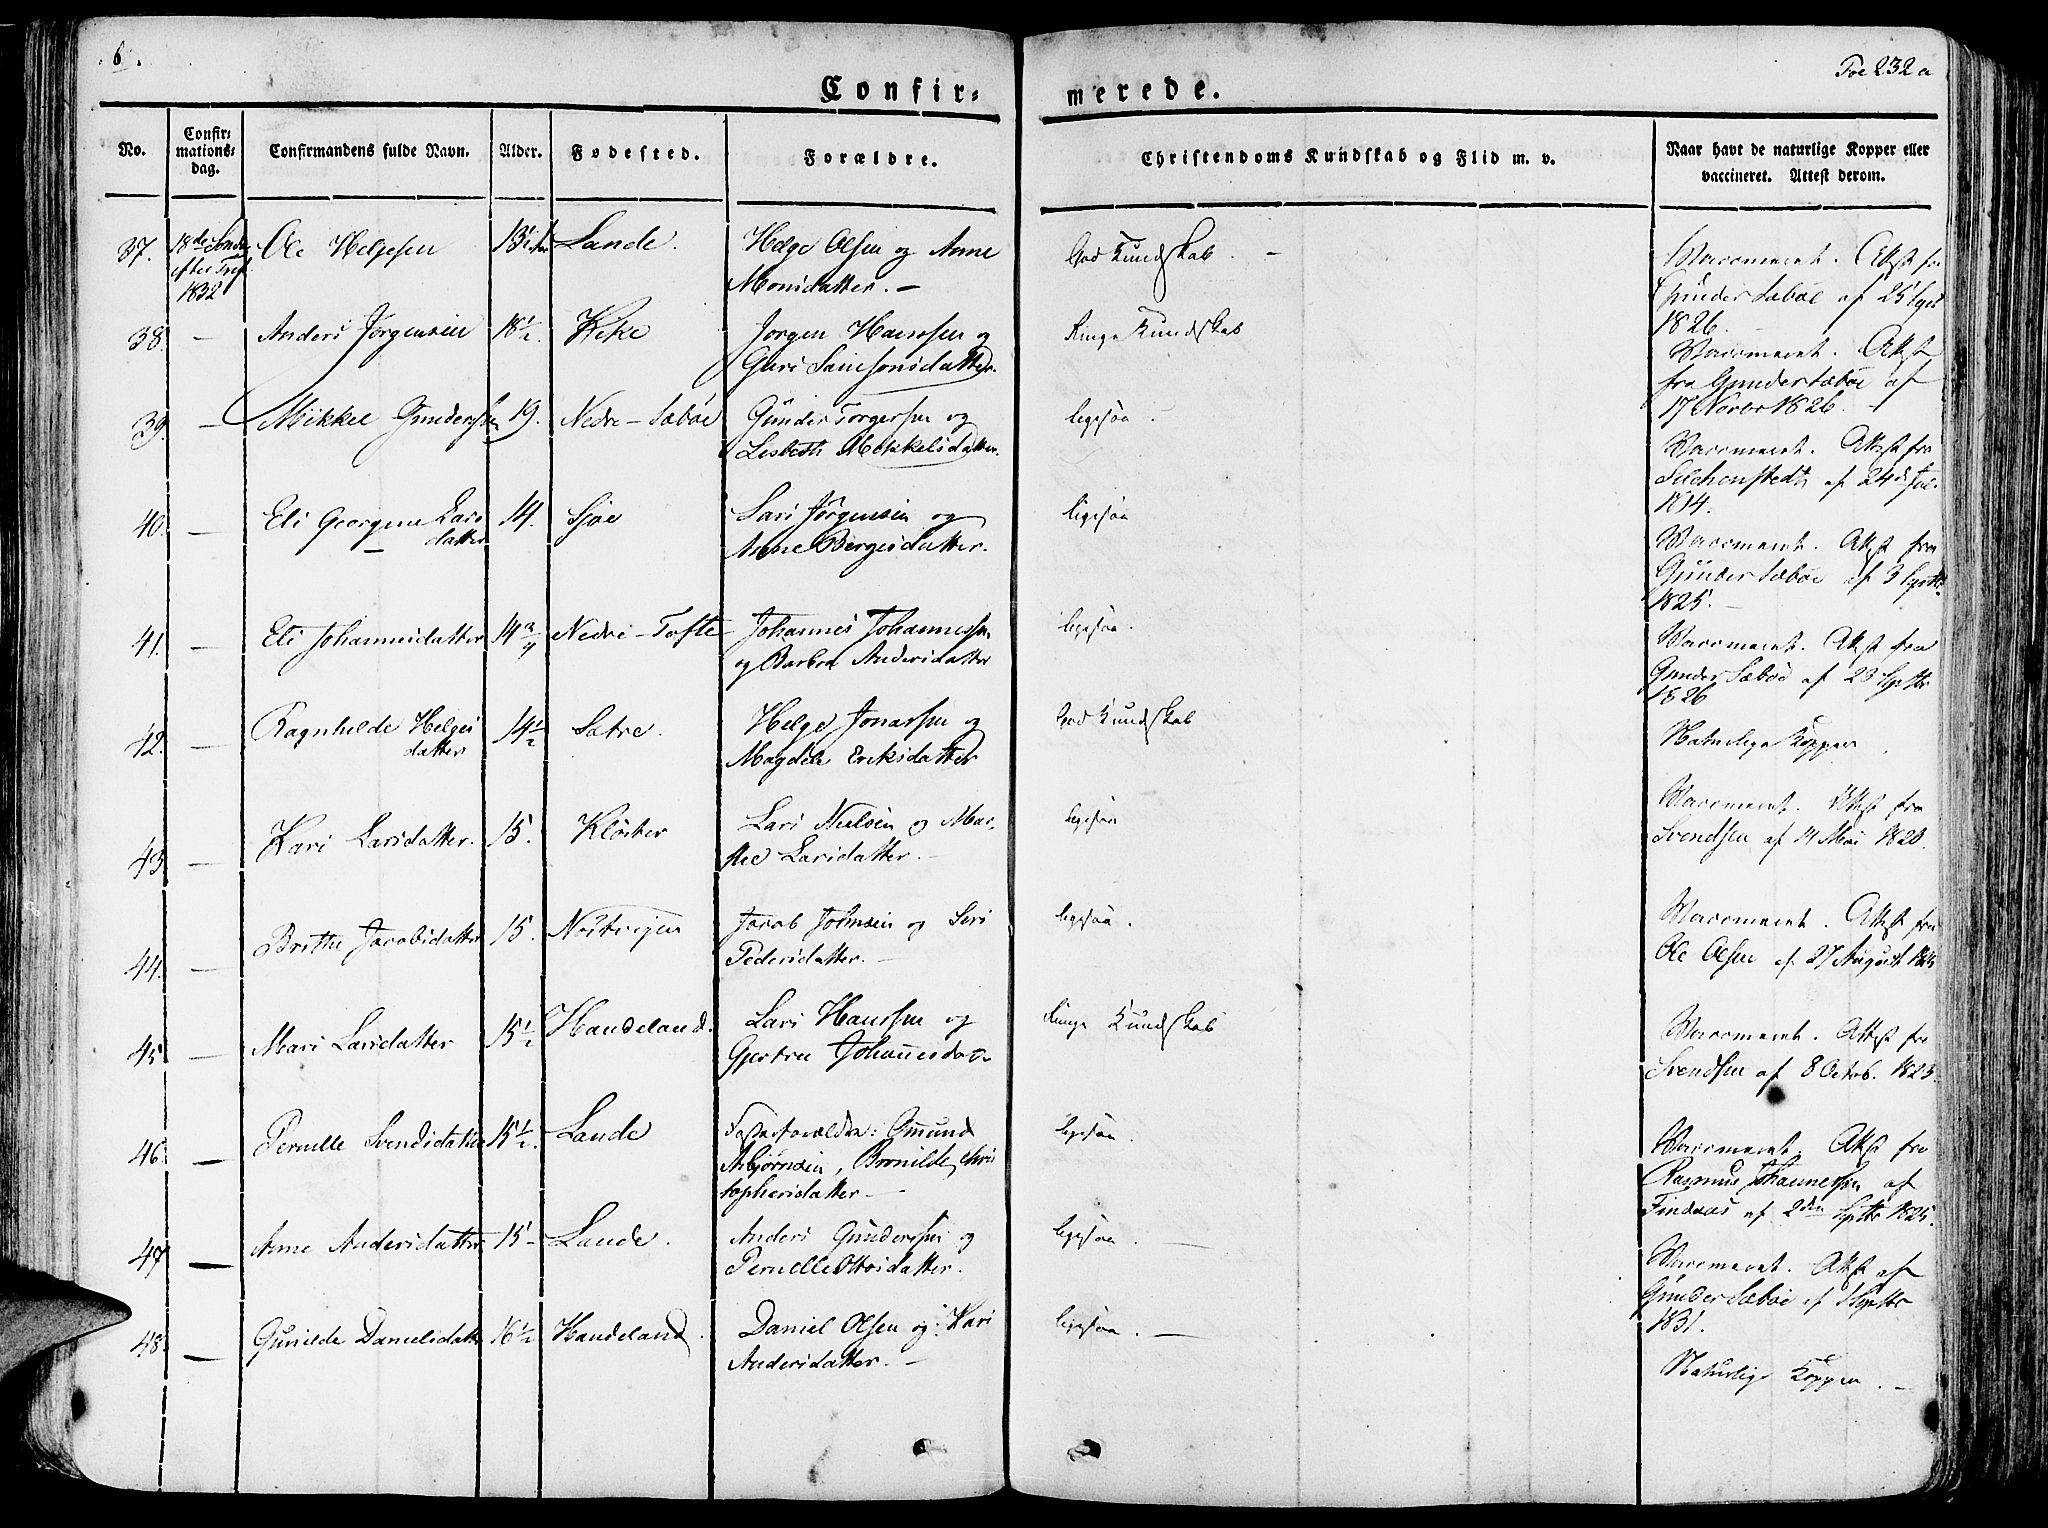 6.
Foe 232 a
Confir= merede.
No.
Confir=
mations=
dag.
Confirmandens fulde Navn.
Alder.
Fødested.
Forældre.
Christendoms Kundskab og Flid m. v.
Naar havt de naturlige Kopper eller
vaccineret. Attest derom.
37. 18de Sønd. Ole Helgesen 13½ Lande. Helge Olsen og Anne God Kundskab. Vaccineret. Attest fra
efter Tref. Monsdatter. Gunder Sæbøe af 25 Sept
1832 1826.
38. Anders Jørgensen 18½. Hamssen og Ringe Kundskab Vaccineret. Attest
Guri Samsonsdatter. fra Gunder Sæbøe af
39. Mikkel Gundersen 19. Nedre-Sæbøe Gunder Torgersen og ligesaa 17 Novbr 1826.
Lisbeth Mikkelsdatter. Vaccineret. Attest fra
40. Eli Georgine Lars 14. Lars Jørgensen og ligesaa af 24de
datter Anne Børgesdatter. 1814.
Vaccineret. Attest fra
Gunder Sæbøe af 3 Septbr
1825.
41. Eli Johannesdatter 14¾ Nedre-Tofte Johannes Johannessen ligesaa. Vaccineret. Attest fra
og Barbra Andersdatter Gunder Sæbøe af 23 Septbr
1826
42. Ragnhilde Helges 14½ Sætre. Helge Jonassen og God Kundskab Naturlige Kopper.
datter Magdele Eriksdatter
43. Kari Larsdatter. 15. Kloster Lars Nielsen og Mar= ligesaa Vaccineret. Attest fra
the Larsdatter. Svendsen af 14 Mai 1823.
44. Brithe Jacobsdatter 15. Jacob Johnsen og Siri ligesaa. Vaccineret. Attest fra
Pedersdatter. Ole Olsen af 27 August
45. Mari Larsdatter 15½ Handeland. Lars Hanssen og Ringe Kundskab Vaccineret. Attest fra
Gjertru Johannesda Svendsen af 8 Octob. 1823.
46. Pernille Svendsdatter 15½. Lande Fosterforældre: Omund ligesaa. Vaccineret. Attest fra
Asbjørnsen, Bronilde Chris Rasmus Johannessen af
tophersdatter Findaas af 2den Septbr 1825.
47. Anne Andersdatter 15 Lande. Anders Gunderssen og ligesaa. Vaccineret. Attest af
Pernille Ottosdatter. Gunder Sæbøe af Septbr
1831.
48. Gunilde Danielsdatter 16½ Handeland. Daniel Olsen og Kari ligesaa. Naturlige Kopper.
Andersdatter.